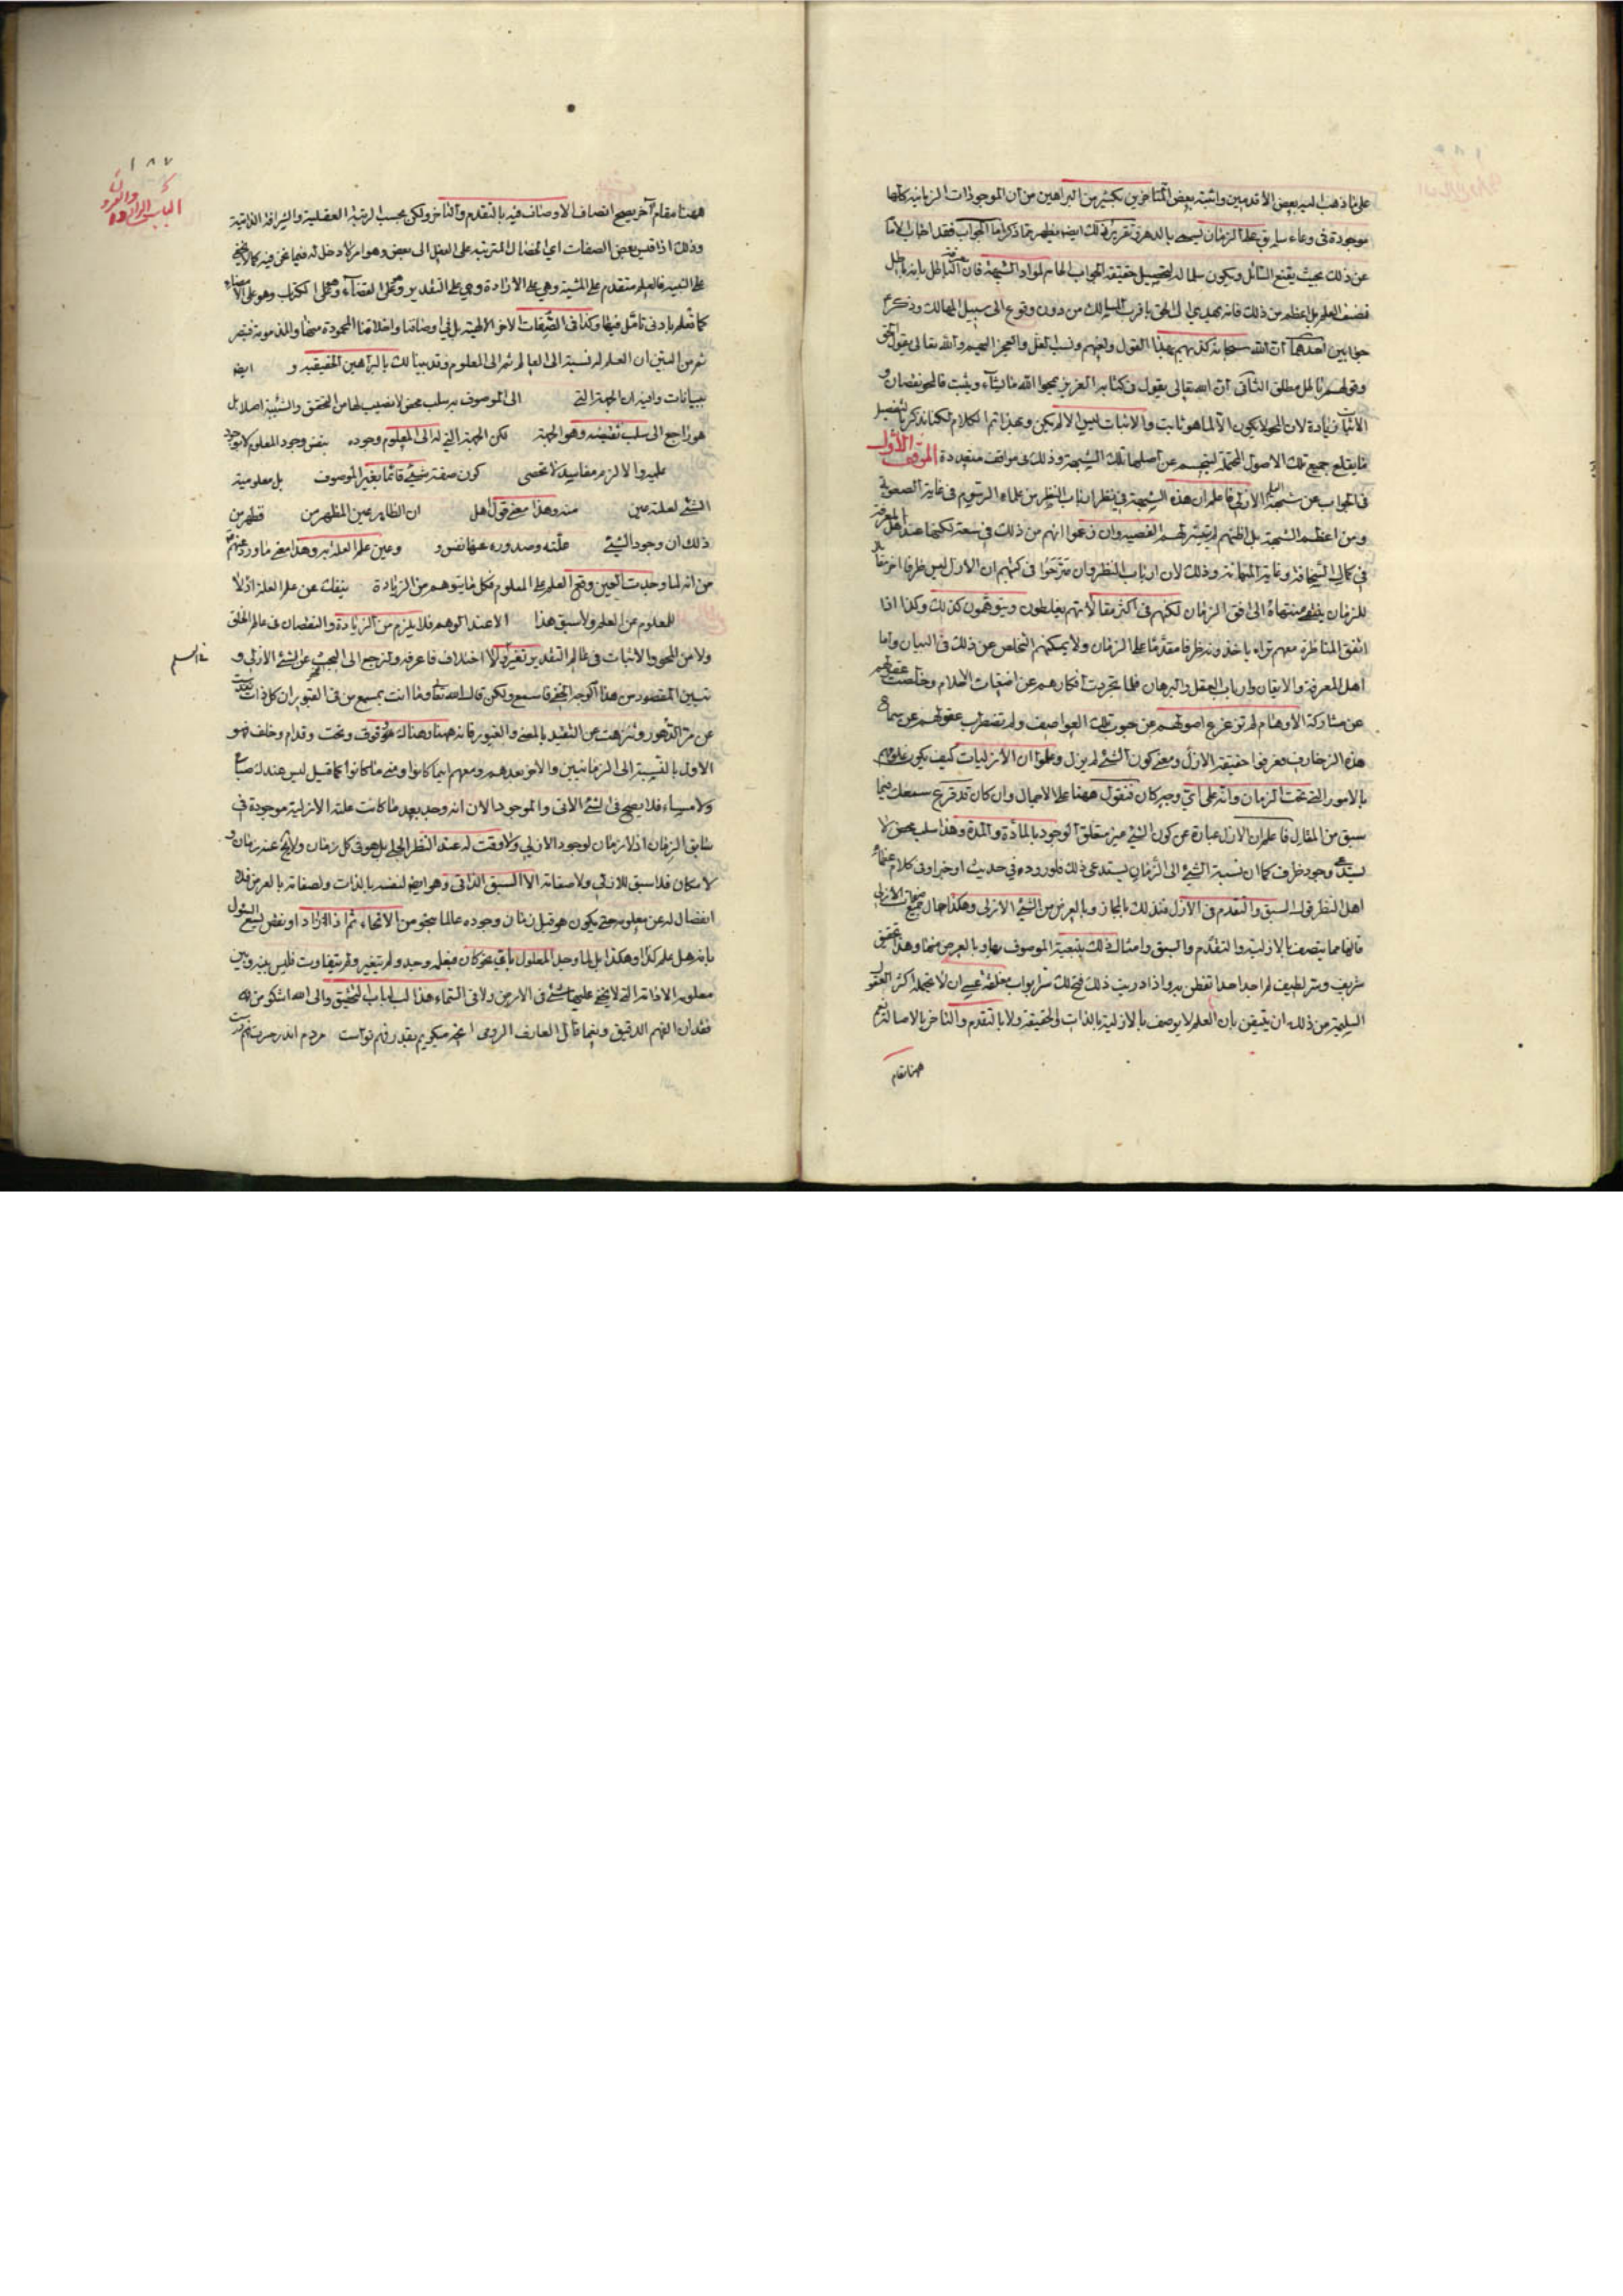 على ما ذهب اليه بعض الأقدمين واثبته بعض المتاخرين بكثير من البراهين من ان الموجودات الزمانية كلها
موجودة فى وعاء سابق على الزمان يسمى بالدهر وتقرير ذلك ايضا يظهر مما ذكر اما الجواب فقد اجاب الامام
عن ذلك بحيث يقنع السائل ويكون سلما له لتحصيل حقيقة الجواب الحاسم لمواد الشبهة فان الباطل بانه باطل
نصف العلم بل اعظم من ذلك فانه يهدى الى الحق باقرب المسالك من دون وقوع الى سبيل المهالك وذكر
جوابين احدهما ان الله سبحانه كذبهم بهذا القول ولعنهم ونسب الغل والعجز اليهم والله تعالى يقول الحق
وقولهم باطل مطلق الثانى ان الله تعالى يقول فى كتابه العزيز يمحوا الله ما يشاء ويثبت فالمحو نقصان و
الاثبات زيادة لان المحو لا يكون الا لما هو ثابت والاثبات ليس الا لم يكن وبهذا تم الكلام لكنا نذكر بالتفصيل
ما يقلع جميع تلك الاصول المجتمة لينحسم عن اصلها تلك الشبهة وذلك فى مواقف متعددة الموقف الأول
فى الجواب عن شبهة الازلى فاعلم ان هذه الشبهة فى نظر ارباب النظر من علماء الرسوم فى غاية الصعوبة
ومن اعظم الشبهة بل اظنهم لم يتيسر لهم التفصى وان زعموا انهم من ذلك فى سعة لكنها عند اهل المعرفة
فى كمال السخافة وغاية المهانة وذلك لان ارباب النظر وان صرحوا فى كتبهم ان الازل ليس ظرفا اخر مقابلا
للزمان ينتهى منتهاه الى افق الزمان لكنهم فى اكثر مقالاتهم يغلطون ويتوهمون كذلك وكذا اذا
اتفق المناظرة معهم تراه ياخذونه ظرفا مقدما على الزمان ولا يمكنهم التخلص عن ذلك فى البيان واما
اهل المعرفة والايقان وارباب العقل والبرهان فلما تجردت افكارهم عن اضغاث الاحلام وخلصت عقولهم
عن مشاركة الأوهام لم تزعزع اصولهم عن هبوب تلك العواصف ولم تضطرب عقولهم عن سماع
هذه الزخارف فعرفوا حقيقة الازل ومعنى كون الشئ لم يزل وعلموا ان الأزليات كيف يكون علومهم
بالامور التى تحت الزمان وانه على اى وجه كان فنقول ههنا على الاجمال وان كان قد قرع سمعك فيما
سبق من المقال فاعلم ان الازل عبارة عن كون الشئ غير متعلق الوجود بالمادة والمدة وهذا سلب محض لا
يستدعى وجود ظرف كما ان نسبة الشئ الى الزمان يستدعى ذلك فلو ورد فى حديث او خبر او فى كلام عظماء
اهل النظر قوله السبق والتقدم فى الأزل فذلك بالمجاز وبالعرض من الشئ الازلى وهكذا حال جميع صفات الازلى
فانها مما يتصف بالازلية والتقدم والسبق وامثال ذلك بتبعية الموصوف بها وبالعرض منها وهذا تحقيق
شريف وسر لطيف لم اجد احدا تفطن به واذا دريت ذلك فتح لك سرا بواب مغلقة عسى ان لا يحتمله اكثر العقول
السليمة من ذلك ان يتيقن بان العلم لا يوصف بالازلية بالذات فى الحقيقة ولا بالتقدم والتاخر بالاصالة نعم
ههنا مقام
١٨٧
ههنا مقام آخر يصح اتصاف الاوصاف فيه بالتقدم والتاخر ولكن بحسب الرتبة العقلية والشرافة الذاتية
وذلك اذا قيس بعض الصفات اى المترتبة على الفعل الى بعض وهو امر لا دخل له فيما نحن فيه كما لا يخفى
على النبيه فالعلم متقدم على المشية وهى على الارادة وهى على التقدير وهو على القضاء وهو على الكتاب وهو على الامضاء
كما تعلم بادنى تامل فيها وكذا فى الصفات الاخر الالهية بل فى اوصافنا واخلاقنا المحمودة منها والمذمومة فتبصر
ثم من البين ان العلم له نسبة الى العالم ثم الى المعلوم وقد بينا لك بالبراهين الحقيقية و ايضا
ببيانات وافية ان الجهة التى الى الموصوف به سلب محض لا نصيب لها من التحقق والشيئية اصلا بل
هو راجع الى سلب نقيضه وهو الجهة لكن الجهة التى له الى المعلوم وجوده بنفس وجود المعلوم
عليه والا لزم مفاسد لا تحصى كون صفة شئ قائما بغير الموصوف بل معلومية
الشئ لعلته عين منه وهذا معنى قول اهل ان الظاهر عين المظهر من فظهر من
ذلك ان وجود الشئ علته وصدوره عنها نفس و وعين علم العلة به وهذا معنى ما ورد عنهم
من انه لما وجدت العين وقع العلم على المعلوم فكل ما يتوهم من الزيادة ينفك عن علم العلة اذ لا
للمعلوم عن العلم ولا سبق هذا الا عند الوهم فلا يلزم من الزيادة والنقصان فى عالم الخلق
ولا من المحو والاثبات فى عالم التقدير تغير ولا اختلاف فاعرفه ولنرجع الى البحث عن الشئ الازلى و
تبين المقصود من هذا الوجه الخفى فاسمع ولكن قال الله تعالى وما انت بمسمع من فى القبور ان كل ذات تقدست
عن مر الدهور وتنزهت عن التقييد بالمعنى والغيور فانه ههنا وهناك وفوق وتحت وقدام وخلف فهو
الاول بالنسبة الى الزمانيين والاخر بعدهم ومعهم اينما كانوا ومتى ما كانوا كما قيل ليس عندك صباح
ولا مساء فلا يصح فى الشئ الاتى والموجود الان انه وجد بعد ما كانت علته الازلية موجودة فى
سابق الزمان اذ لا زمان لوجود الازلى ولا وقت له عند النظر الجلى بل هو فى كل زمان ولا يخلو عنه زمان و
لا مكان فلا سبق للازلى ولا صفاته الا السبق الذاتى وهو ايضا لنفسه بالذات ولصفاته بالعرض فلا
انفصال له عن معلوله حتى يكون هو قبل زمان وجوده عالما بنحو من الانحاء ثم اذا زاد او نقص يسع السؤل
بانه هل علم كذا وهكذا بل لما وجد المعلول باى نحو كان فبعلمه وجد ولم يتغير ولم يتفاوت فليس بينه وبين
معلوله الا ذاته التى لا يخفى عليها شئ فى الارض ولا فى السماء هذا لب لباب التحقيق والى الله اشكو من
فقدان الفهم الدقيق ونعما قال العارف الرومى انچه ميگويم بقدر فهم تو است مردم اندر حسرت فهم درست